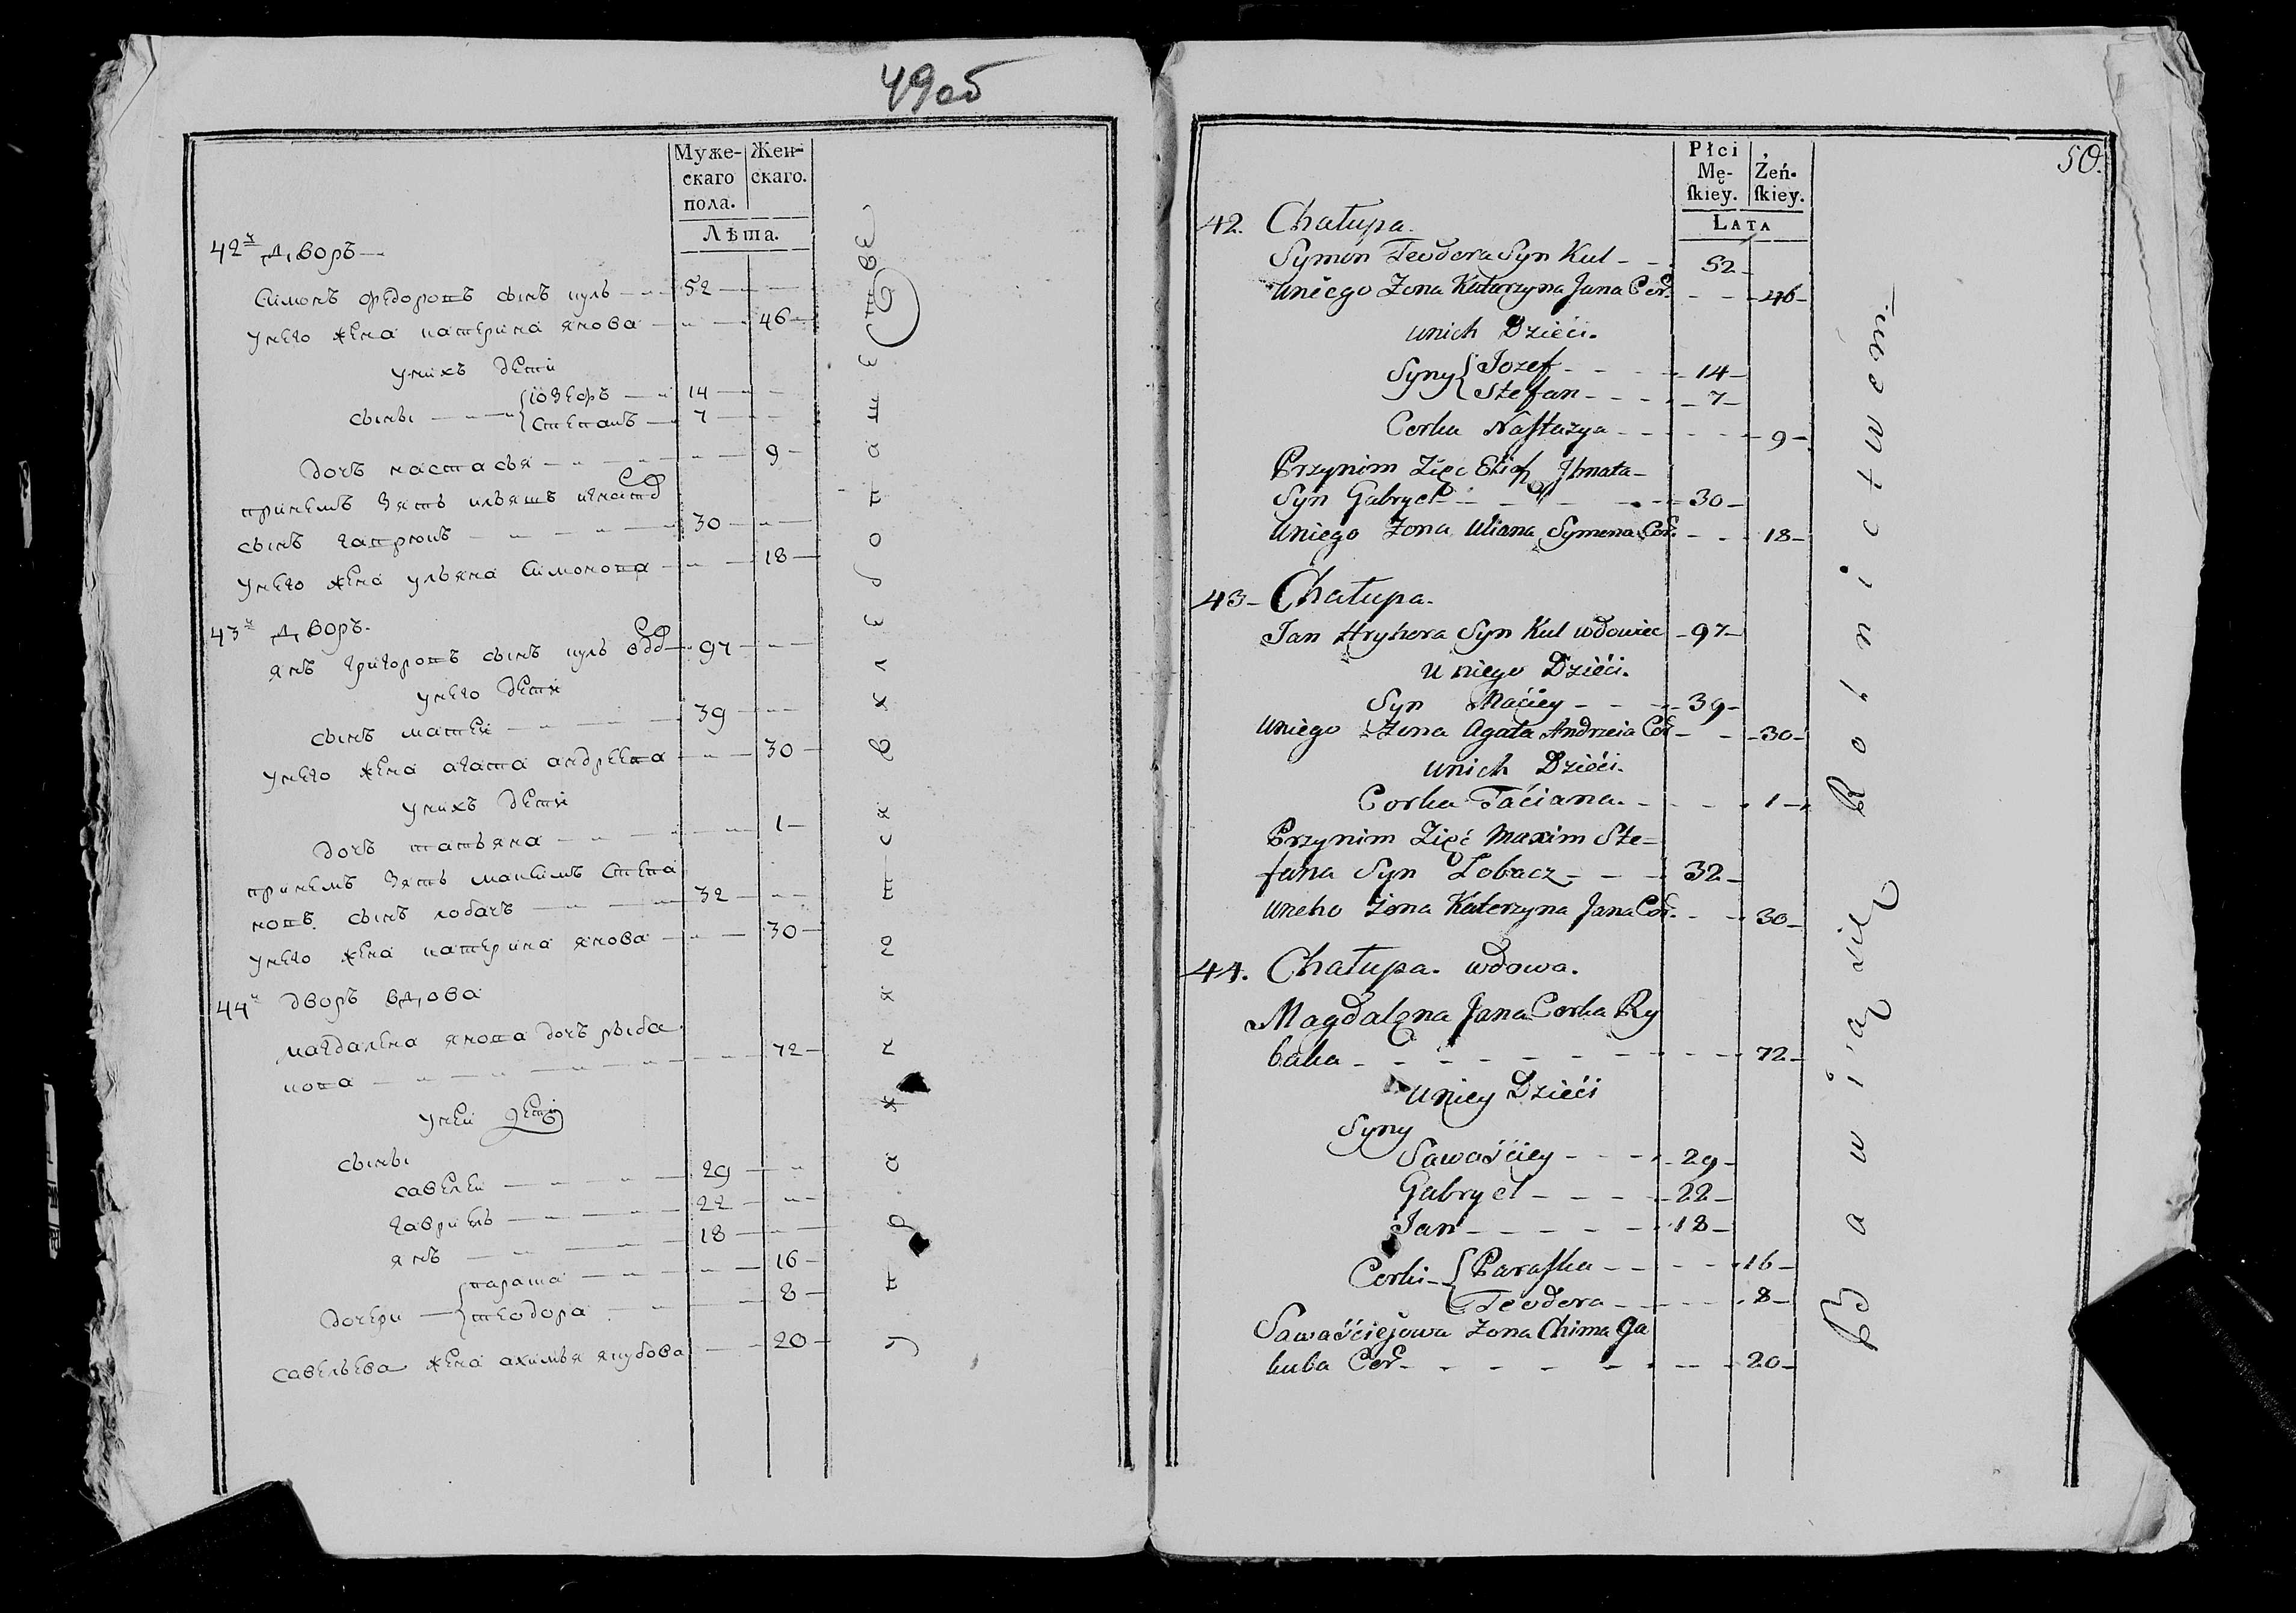 49об
Муже-
скаго
пола.
Жен-
скаго.
Лѣта.
42й дворъ
Симонъ Федоровъ сынъ куль 52
у него жена катерина янова 46
у нихъ дети
сыны Іозефъ 14
Степанъ 7
дочъ настасья 9
принемъ зять ильяшъ игнатов
сынъ гаврюкъ 30
у него жена ульяна Симонова 18
43й дворъ.
янъ григоровъ сынъ куль вдов 97
у него дети
сынъ матеи 39
у него жена агата андреева 30
у нихъ дети
дочъ татьяна 1
принемъ зять максимъ Степа
новъ сынъ лобачъ 32
у него жена катерина янова 30
44й дворъ вдова
магдалена янова дочъ рыба
кова 72
у неи дети
сыны
савелеи 29
гаврилъ 22
янъ 18
дочери параша 16
теодора 8
савельева жена ахимья якубова 20
упражняются въ хлебопашестве
50.
Płci
Mę-
skiey.
Żeń-
skiey.
LATA
42. Chałupa.
Symon Teodora Syn Kul 52
Uniego Zona Katarzyna Jana Cor. 46
unich Dzieci.
Syny Jozef 14
Stefan 7
Corka Nastazya 9
Przynim Zięc Eliasz Ihnata
Syn Gabryel 30
Uniego Zona Uliana Symona Cor. 18
43 Chałupa.
Jan Hryhora Syn Kul wdowiec 97
U niego Dzieci.
Syn Maciey 39
Uniego Zona Agata Andrzeia Cor 30
unich Dzieci.
Corka Taciana. 1
Przynim Zięć Maxim Ste-
fana Syn Łobacz 32
Uneho Zona Katerzyna Jana Cor. 30
44. Chałupa. wdowa.
Magdalena Jana Corka Ry
baka 72
Uniey Dzieci
Syny
Sawaściey 29
Gabryel 22
Jan 18
Corki Paraska 16
Teodora 8
Sawaściejowa Zona Chima Ja
kuba Cor. 20
Bawią się Rolnictwem.